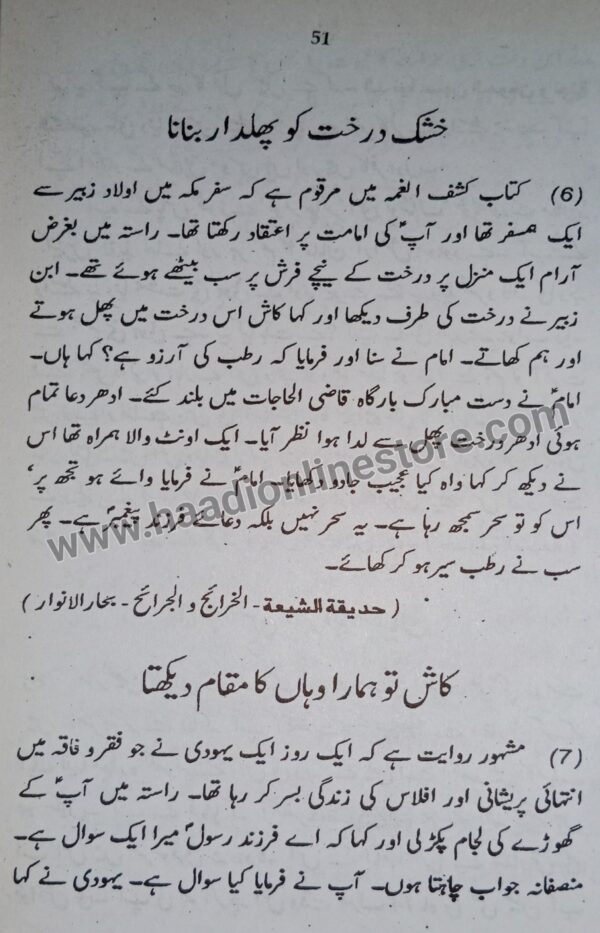 51
خشک درخت کو پھلدار بنانا
(6) کتاب کشف الغمہ میں مرقوم ہے کہ سفر مکہ میں اولاد زبیر سے
ایک ہمسفر تھا اور آپؑ کی امامت پر اعتقاد رکھتا تھا۔ راستہ میں بغرض
آرام ایک منزل پر درخت کے نیچے فرش پر سب بیٹھے ہوئے تھے۔ ابن
زبیر نے درخت کی طرف دیکھا اور کہا کاش اس درخت میں پھل ہوتے
اور ہم کھاتے۔ امام نے سنا اور فرمایا کہ رطب کی آرزو ہے؟ کہا ہاں۔
امامؑ نے دست مبارک بارگاہ قاضی الحاجات میں بلند کئے۔ ادھر دعا تمام
ہوئی ادھر درخت پھل سے لدا ہوا نظر آیا۔ ایک اونٹ والا ہمراہ تھا اس
نے دیکھ کر کہا واہ کیا عجیب جادو دکھایا۔ امامؑ نے فرمایا وائے ہو تجھ پر‘
اس کو تو سحر سمجھ رہا ہے۔ یہ سحر نہیں بلکہ دعائے فرزند پیغمبرؐ ہے۔ پھر
سب نے رطب سیر ہو کر کھائے۔
(حدیقۃ الشیعۃ - الخرائج و الجرائح - بحار الانوار)
کاش تو ہمارا وہاں کا مقام دیکھتا
(7) مشہور روایت ہے کہ ایک روز ایک یہودی نے جو فقر و فاقہ میں
انتہائی پریشانی اور افلاس کی زندگی بسر کر رہا تھا۔ راستہ میں آپؑ کے
گھوڑے کی لجام پکڑ لی اور کہا کہ اے فرزند رسولؐ میرا ایک سوال ہے۔
منصفانہ جواب چاہتا ہوں۔ آپ نے فرمایا کیا سوال ہے۔ یہودی نے کہا
www.haadionlinestore.com